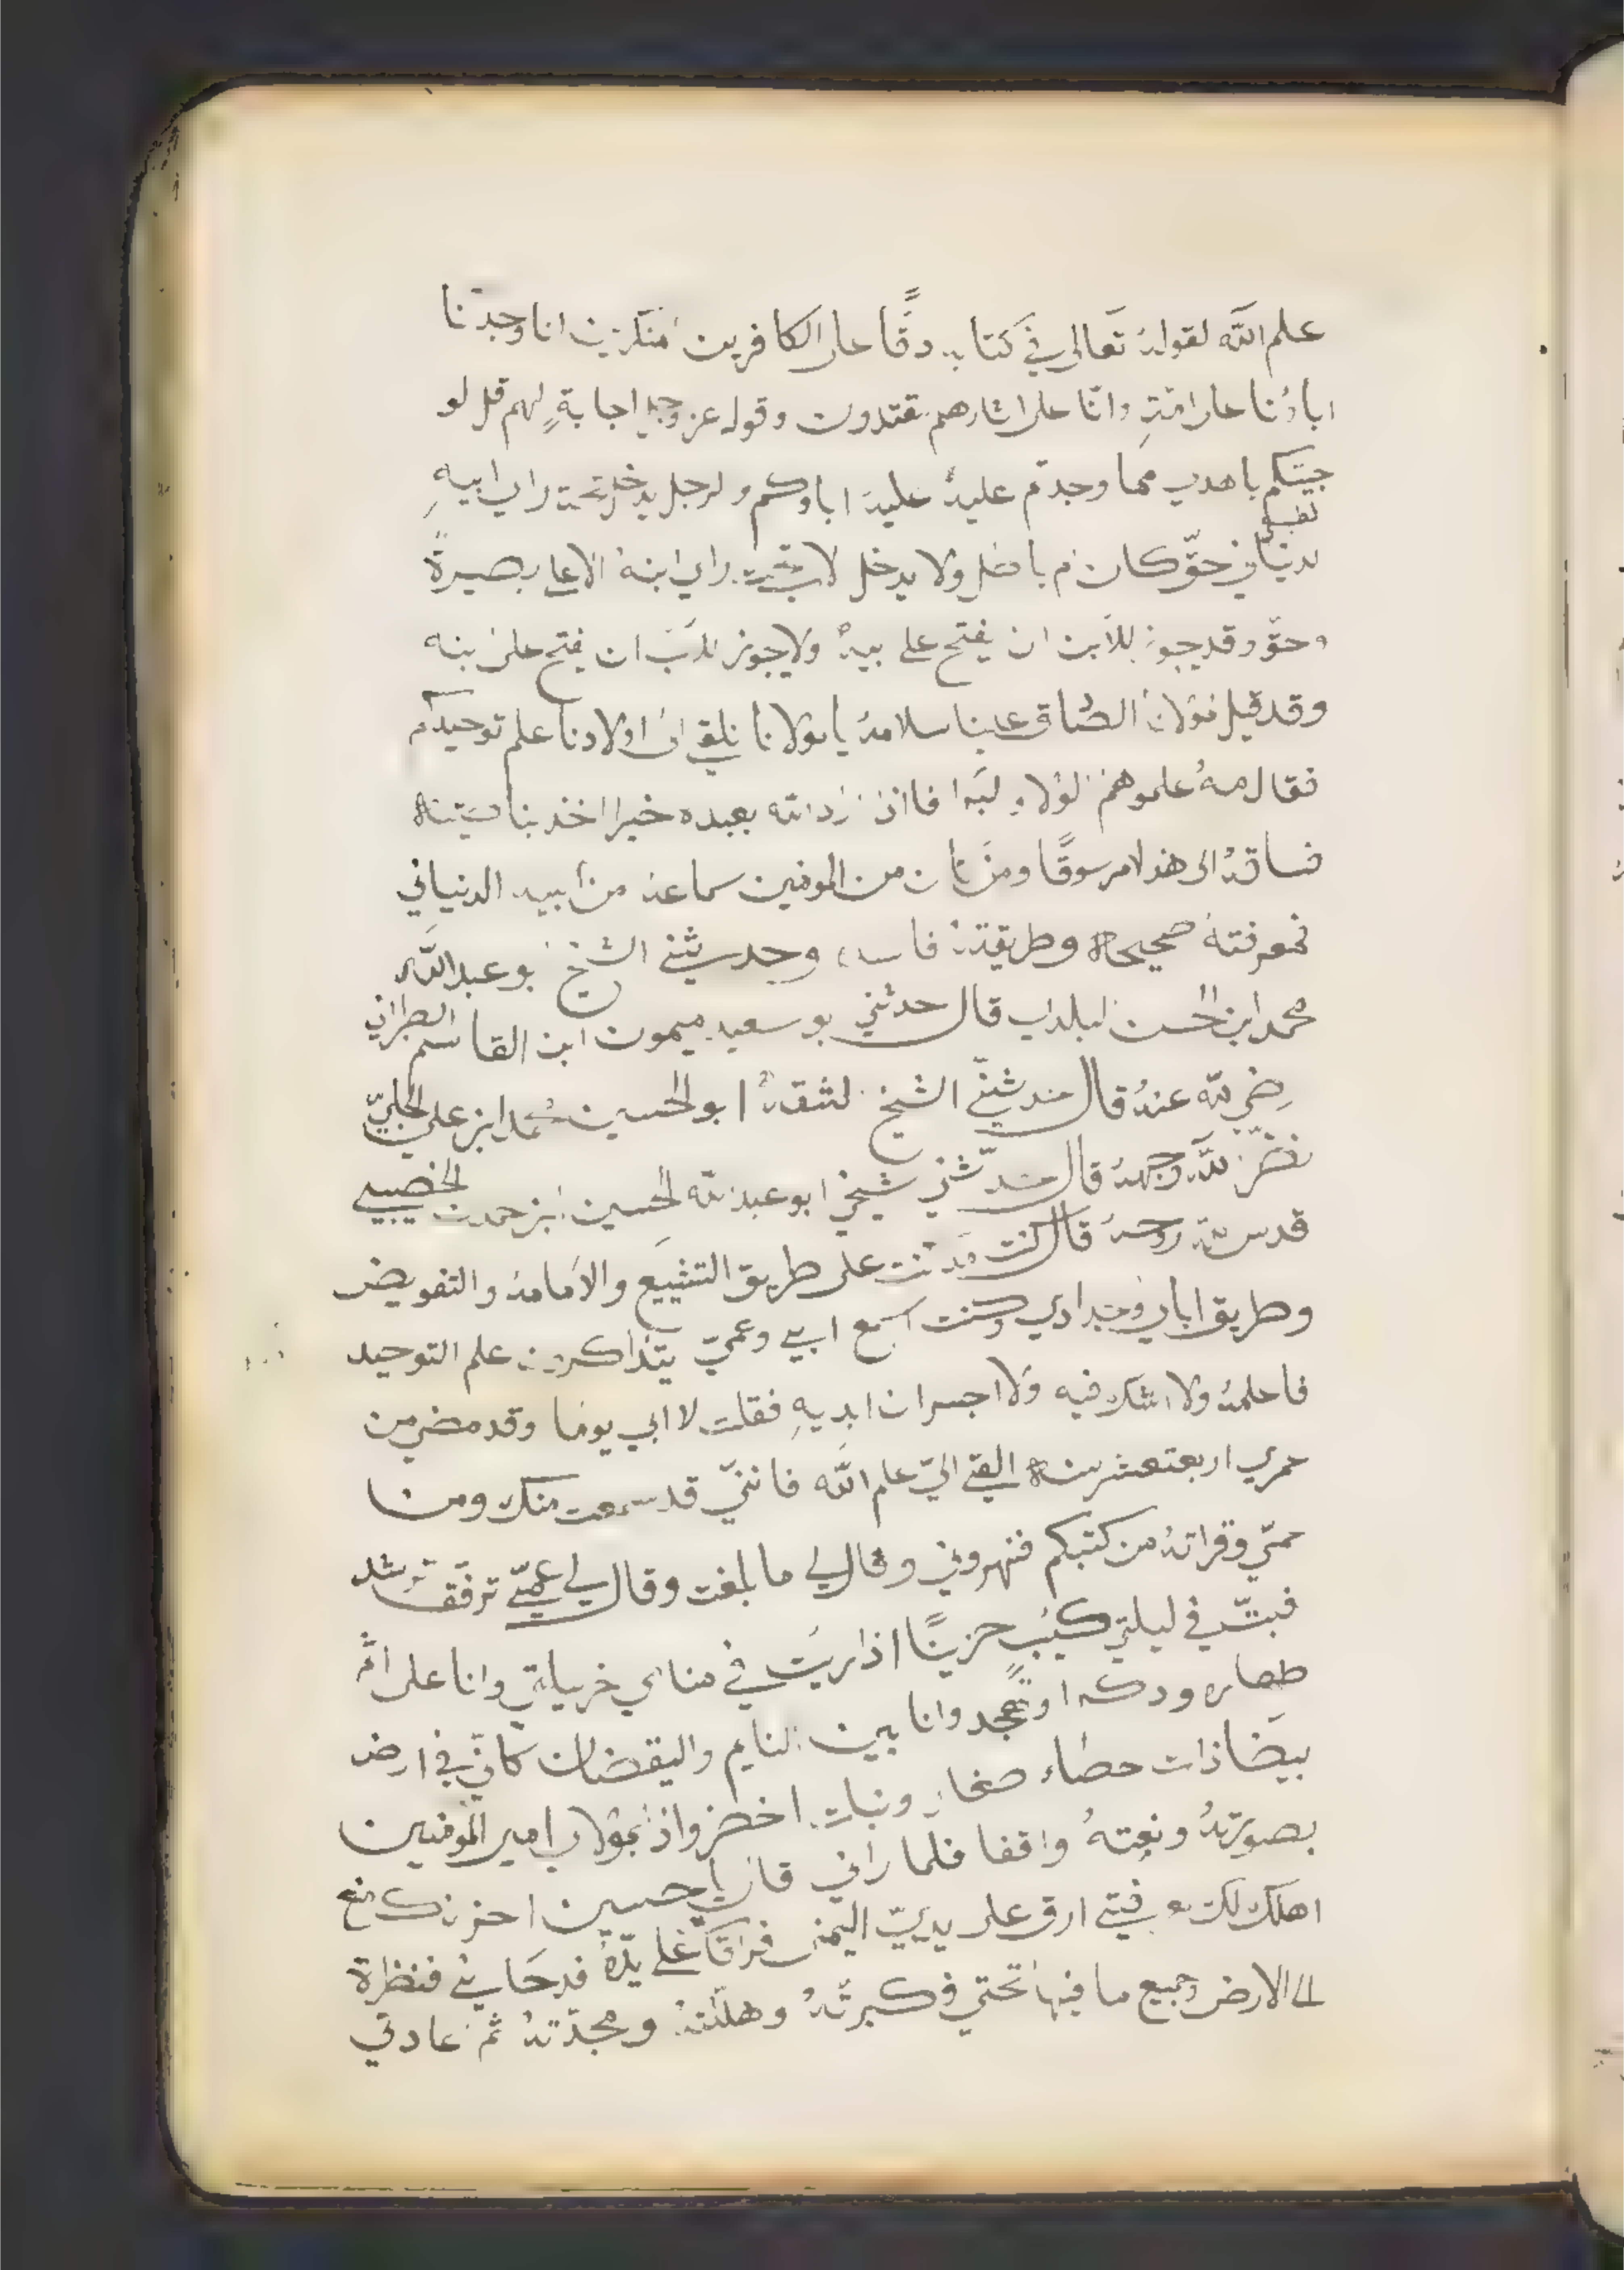 علم الله لقوله تعالى في كتابه ردًّا على الكافرين المنكرين انا وجدنا
اباؤنا على امةٍ وانّا على اثارهم مقتدون وقوله عز وجل اجابةٍ لهم قل لو
جيتكم باهدى مما وجدتم عليه عليه اباوكم والرجل يدخل تحت راي ابيهِ
لدنياني حقّ كان ام باطل ولا يدخل لاب تحت راي ابنه الا على بصيرةً
وحقّ وقد يجوز للابن ان يفتح على بيه ولا يجوز للاب ان يفتح على بنه
وقد قيل لمولانا الصاق علينا سلامه يا مولانا نلقي الى اولادنا علم توحيدكم
فقال مهُ علموهم الولاء والبرا فااذا اراد الله بعبده خيرا اخذ بناصيته
فساقهُ الى هذا الامر سوقًا ومن كان من المومنين سماعه من ابيه الدنياني
فمعرفته صحيحاة وطريقته فاسده وحدثني الشيخ ابو عبد الله
محمد ابن الحسن البلدي قال حدثني بو سعيد ميمون ابن القاسم الطبراني
رضي الله عنهُ قال حدثنّي الشيخ الثقة ابو الحسين محمد ابن علي الجليّ
نضّر الله وجههُ قال حدّثني شيخي ابو عبد الله الحسين ابن حمدن الخصيبي
قدس الله روحهُ قال كنت قد نشت على طريق التشييع والامامه والتفويض
وطريق اباي وجدادي وكنت اسمع ابي وعميّ يتذاكرون علم التوحيد
فاعلمهُ ولا اشك فيه ولا اجسر ان ابديهِ فقلت لاابي يوما وقد مضي من
عمري اربعتعشر سناة القي اليّ علم الله فانننيّ قد سمعت منك ومن
عميّ وقراته من كتبكم فنهروني وقال لي ما بلغت وقال لي عميّ ترفّق ترشد
فبتّ في ليلتي كيبٍ حزينًا اذ اريت في منامي خر ليلتي وانا على اثر
طهاره وذكر اوتهجد وانا بين النايم واليقضان كانّي في ارض
بيضا ذات حصاء صغار ونبات اخضر واذا بمولاي امير المومنين
بصورته ونعته واقفا فلما راني قال ياحسين احزنك منع
اهلك لك معرفتي ارق على يديّ اليمنى فراقا على يده فدحاني فنظرة
الى الارض وجميع ما فيها تحتي فكبرتهُ وهللته ومجدّته ثم عادني